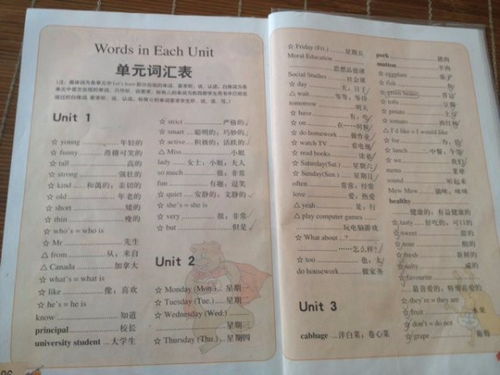 Words in Each Unit
单元词汇表
Unit 1
☆ young 年轻的
☆ funny 滑稽可笑的
☆ tall 高的
☆ strong 强壮的
☆ kind 和蔼的；亲切的
☆ old 年老的
☆ short 矮的
☆ thin 瘦的
☆ who's = who is
☆ Mr 先生
△ from 从；来自
△ Canada 加拿大
☆ what's = what is
☆ like 像；喜欢
☆ he's = he is
know 知道
principal 校长
university student 大学生
☆ strict 严格的
☆ smart 聪明的；巧妙的
☆ active 积极的；活跃的
△ Miss 小姐
lady 女士；小姐；夫人
so much 很；非常
fun 有趣；逗笑
☆ quiet 安静的；文静的
☆ she's = she is
☆ very 很；非常
☆ but 但是
Unit 2
☆ Monday (Mon.) 星期一
☆ Tuesday (Tue.) 星期二
☆ Wednesday (Wed.)
星期三
☆ Thursday (Thu.) 星期四
☆ Friday (Fri.) 星期五
Moral Education
思想品德课
Social Studies 社会课
☆ day 天；日子
△ wait 等等；等待
tomorrow 明天
☆ have 有
☆ on 在……时候
☆ do homework 做作业
☆ watch TV 看电视
☆ read books 读书
☆ Saturday(Sat.) 星期六
☆ Sunday(Sun.) 星期日
often 常常；经常
love 爱；热爱
△ yeah 是；行
△ play computer games
玩电脑游戏
☆ What about …?
……怎么样？
☆ too 也；太
do housework 做家务
Unit 3
cabbage 洋白菜；卷心菜
pork 猪肉
mutton 羊肉
☆ eggplant 茄子
☆ fish 鱼
☆ green beans 青豆
☆ tofu 豆腐
☆ potato 土豆
☆ tomato 西红柿
△ I'd like = I would like
☆ for 为
☆ lunch 中餐；午饭
☆ we 我们
menu 菜单
sound 听起来
Mew Mew 猫咪；咪咪
healthy
健康的；有益健康的
☆ tasty 好吃的；可口的
☆ sweet 甜的
☆ sour 酸的
☆ fresh 新鲜的
☆ salty 咸的
☆ favourite
最喜爱的；特别喜爱的
☆ they're = they are
☆ fruit 水果
☆ don't = do not
☆ grape 葡萄